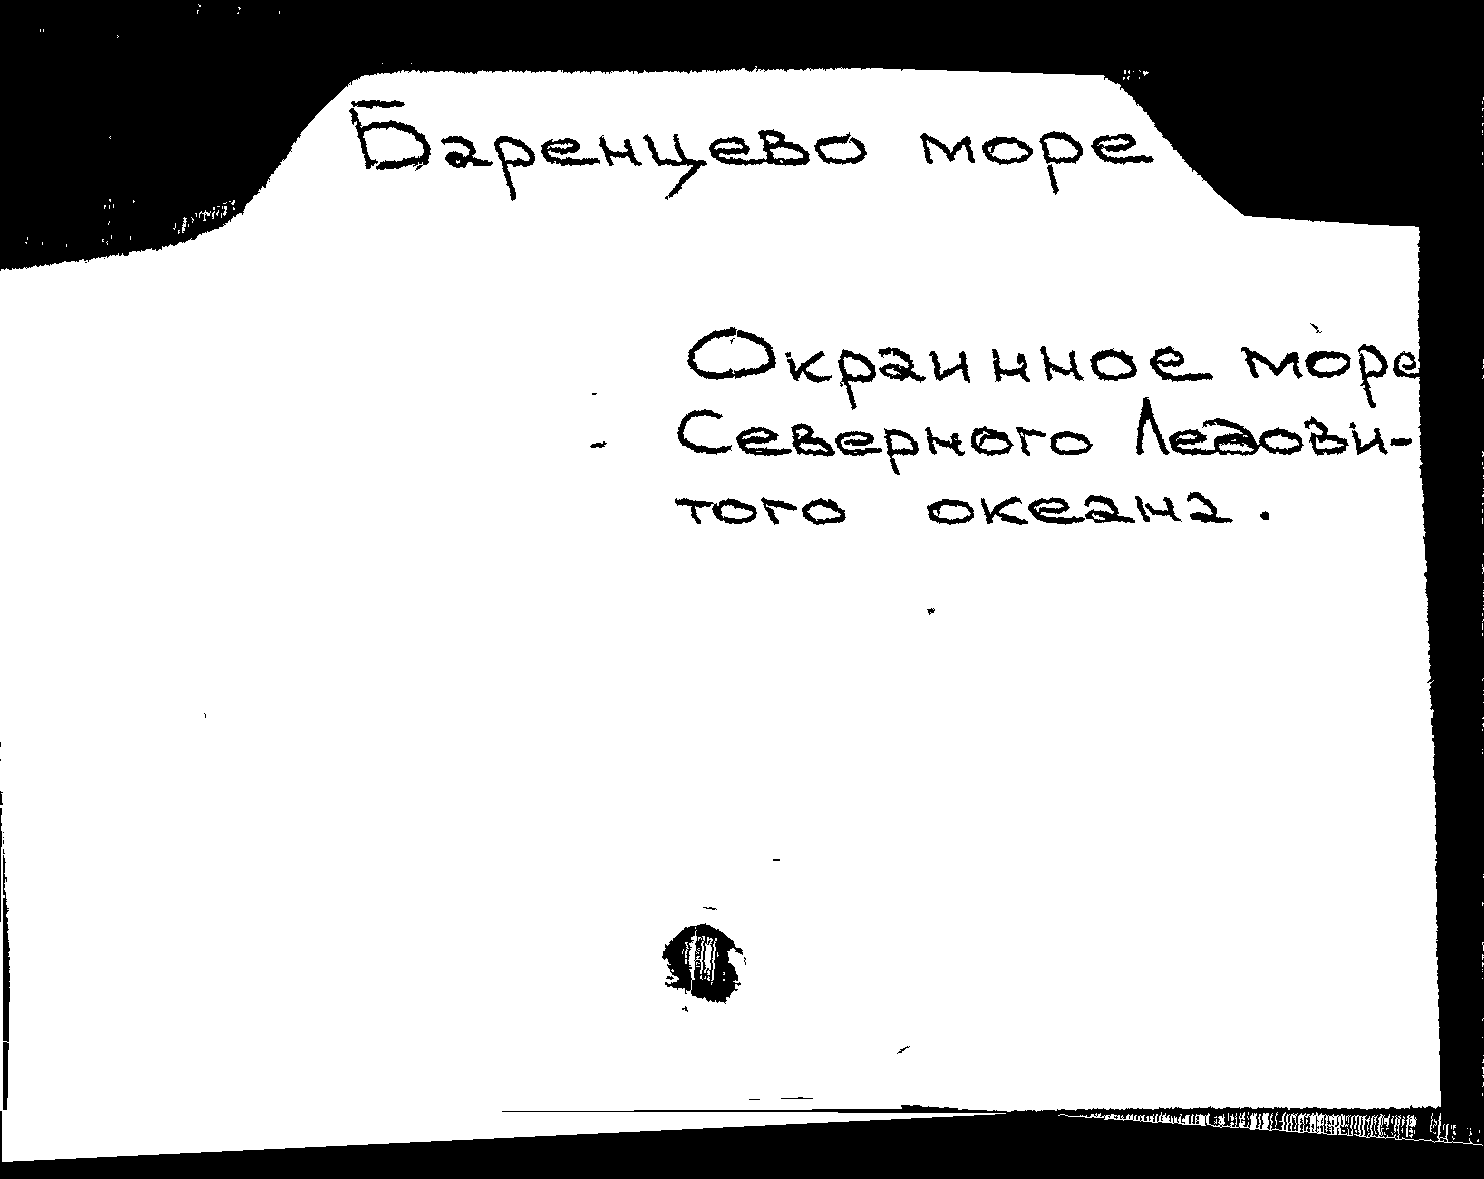 Баренцево море
Окраинное море
Северного Ледови-
того океана.